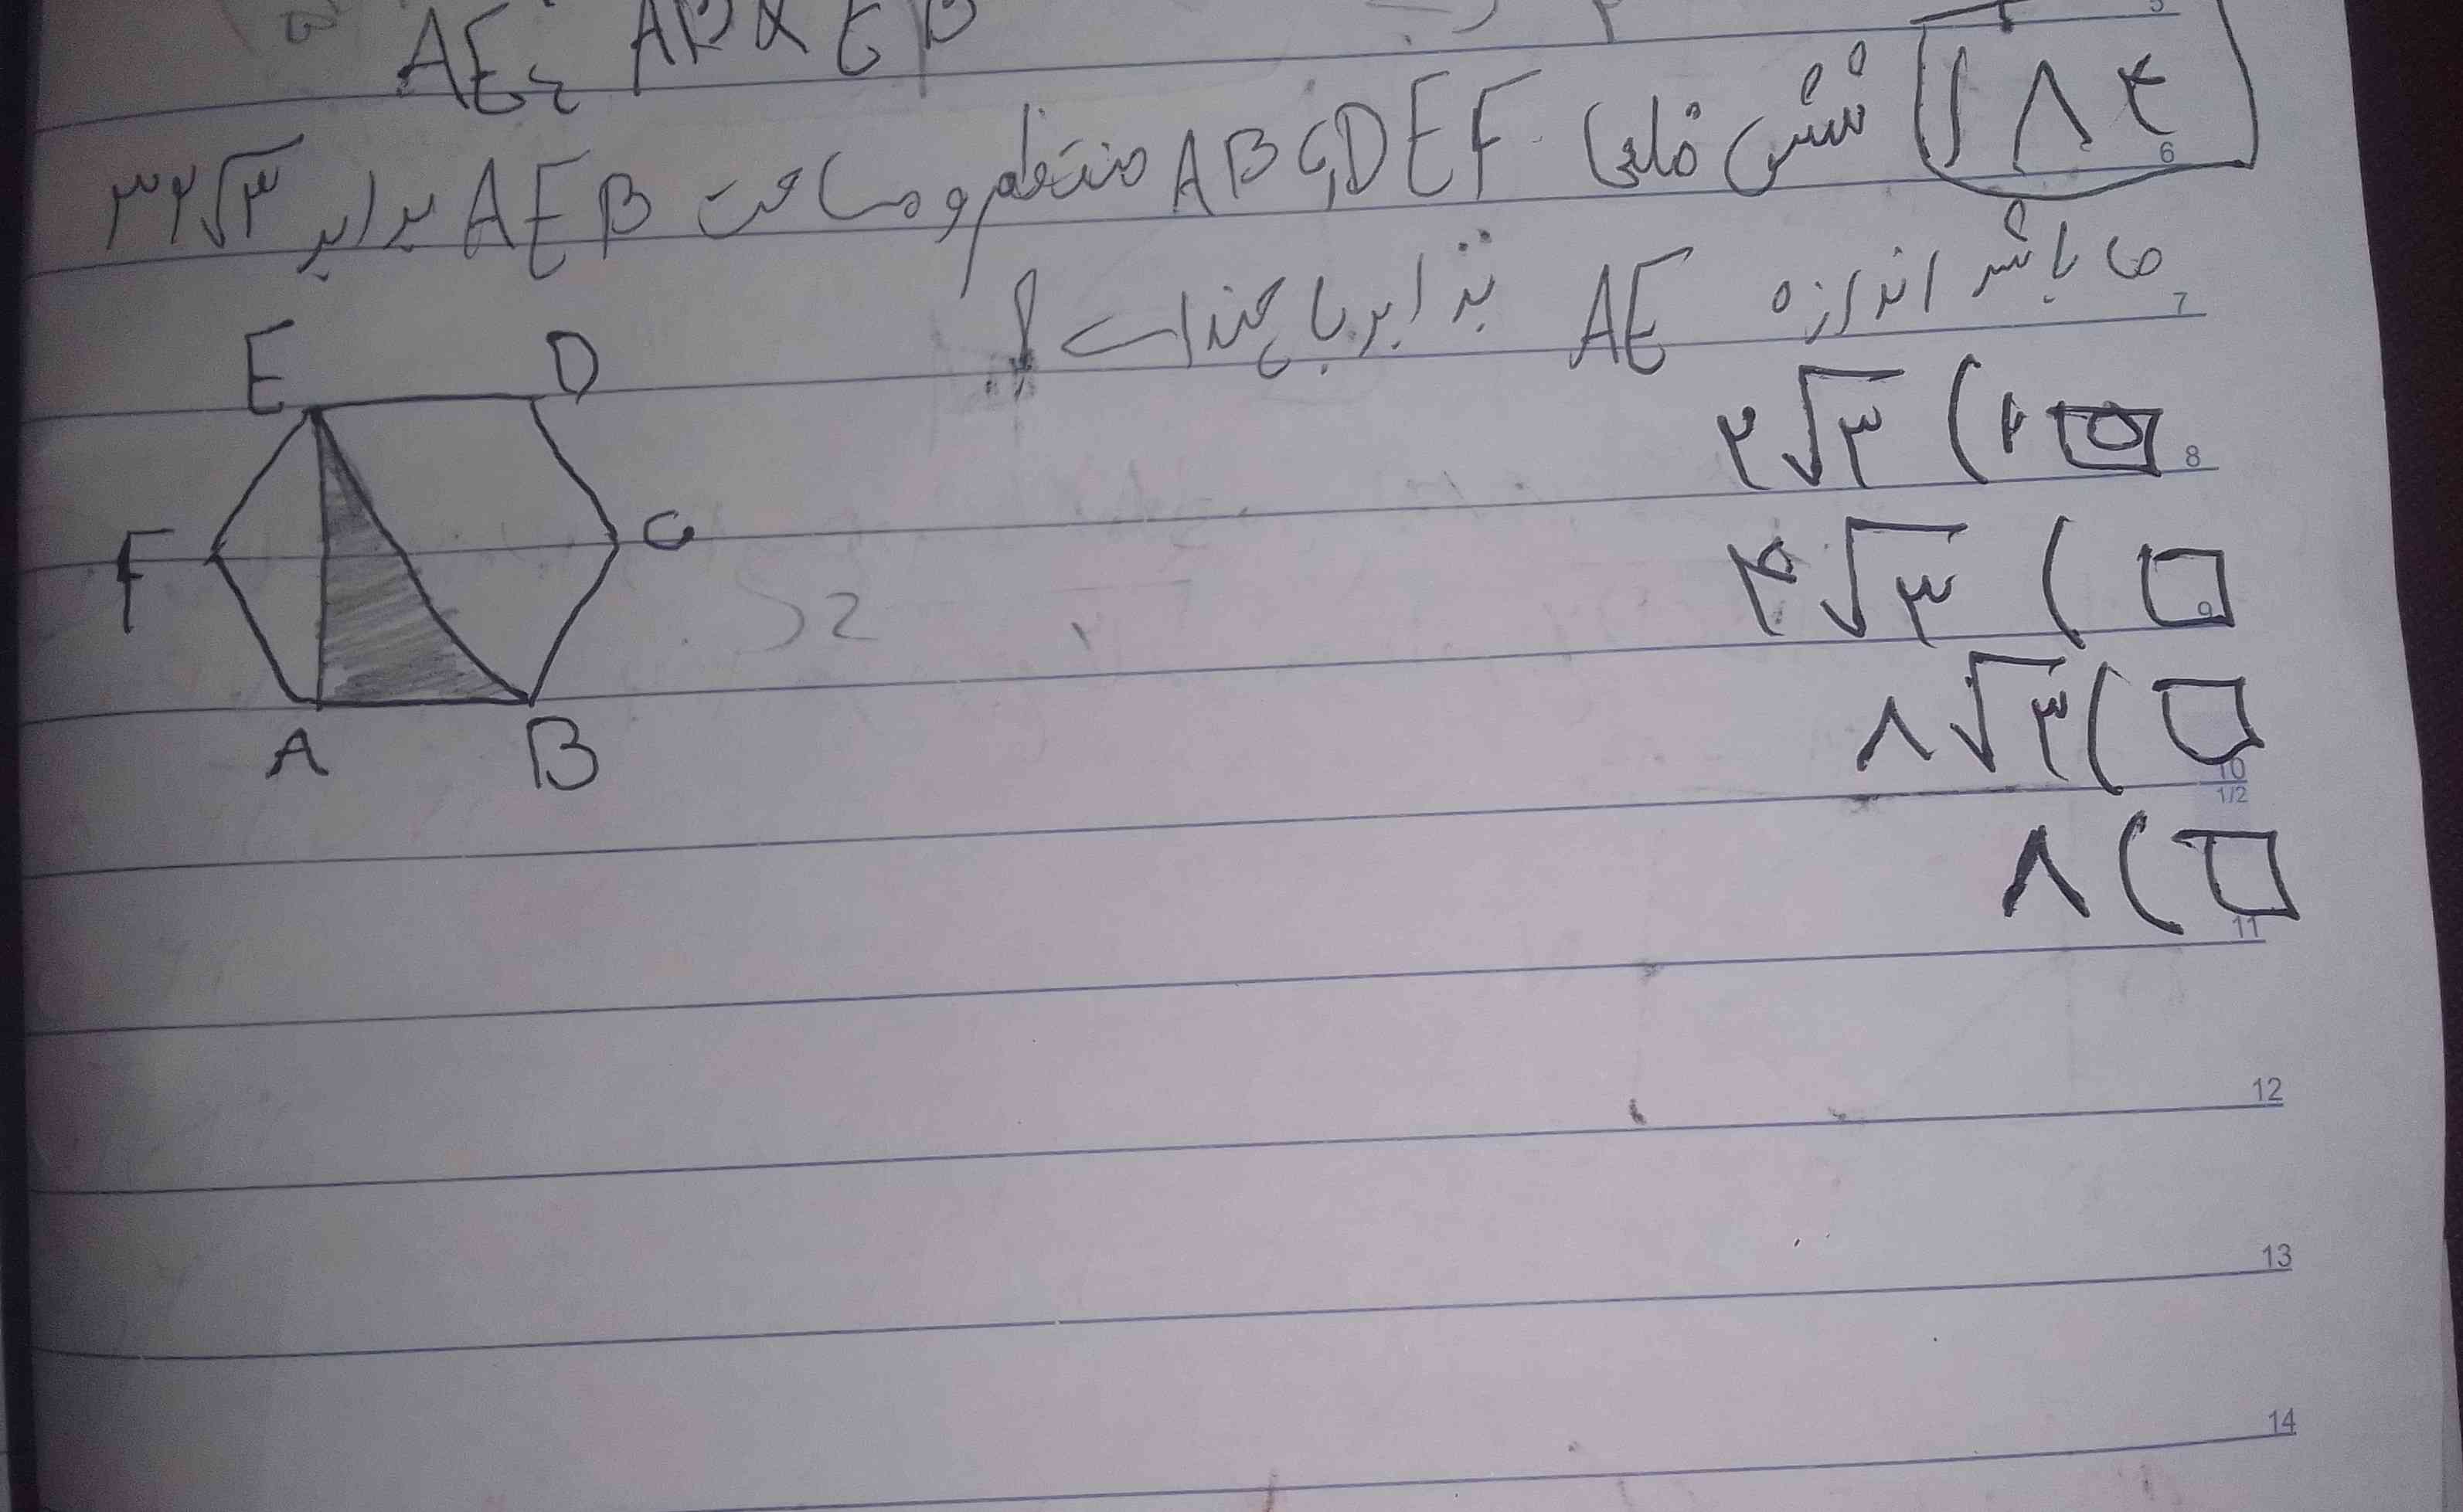 AE = AB × EB
۱۸۴ شش ضلعی ABCDEF منتظم و مساحت AEB برابر ۳۲√۳
می باشد اندازه AE برابر با چند است؟
۲√۳ (۱
۴√۳ (
۸√۳ (
۸ (
E D
F C
A B
S =
5
6
7
8
9
10
1/2
11
12
13
14